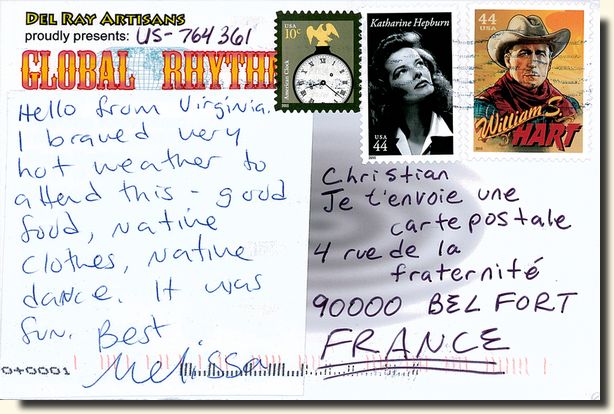 DEL RAY ARTISANS
proudly presents: US-764361
GLOBAL RHYTH
Hello from Virginia.
I braved very
hot weather to
attend this - good
food, native
clothes, native
dance. It was
fun. Best
Melissa
USA
10c
American Clock
Katharine Hepburn
USA
44
2010
44
USA
William S.
HART
2010
Christian
Je t'envoie une
carte postale
4 rue de la
fraternité
90000 BELFORT
FRANCE